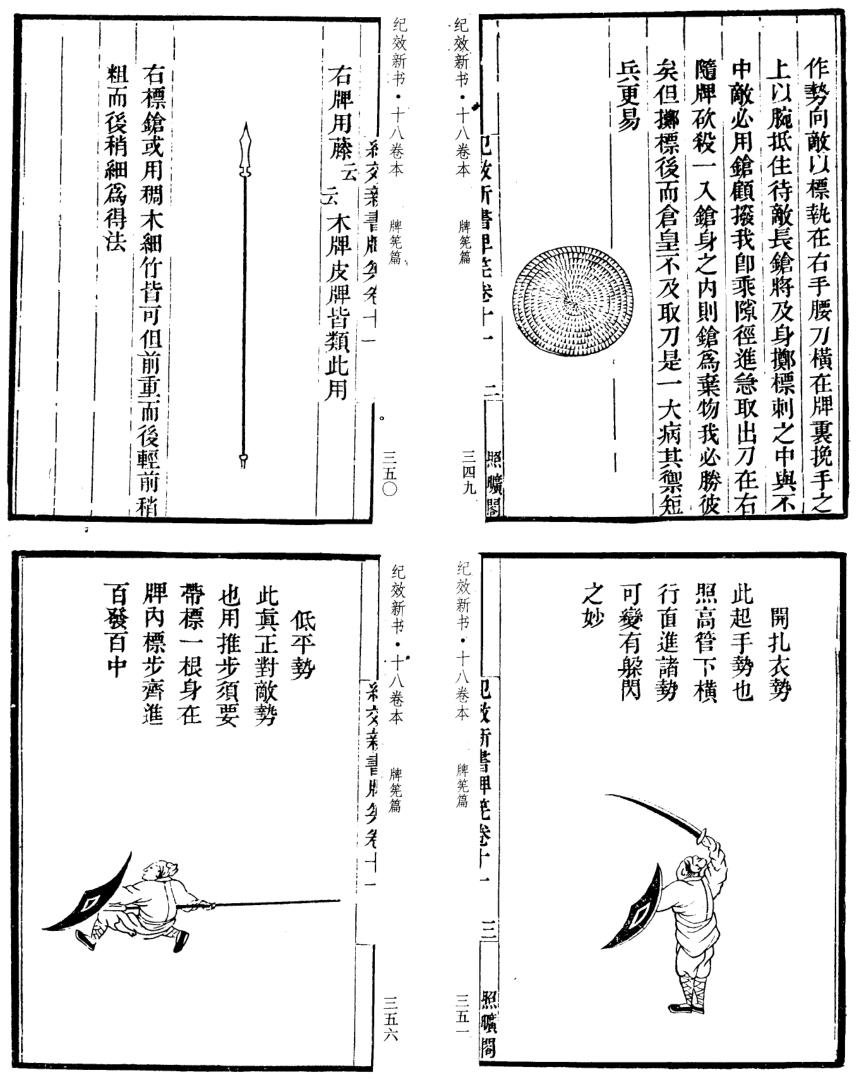 作勢向敵以標執在右手腰刀橫在牌裏挽手之
上以腕抵住待敵長鎗將及身擲標刺之中與不
中敵必用鎗顧撥我卽乘隙徑進急取出刀在右
隨牌砍殺一入鎗身之內則鎗爲棄物我必勝彼
矣但擲標後而倉皇不及取刀是一大病其禦短
兵更易
卷十一
二
照曠閣
纪效新书·十八卷本 牌筅篇
三四九
纪效新书·十八卷本 牌筅篇
三五〇
右牌用藤云云木牌皮牌皆類此用
右標鎗或用稠木細竹皆可但前重而後輕前稍
粗而後稍細爲得法
開扎衣勢
此起手勢也
照高管下橫
行直進諸勢
可變有躲閃
之妙
卷十一
三
照曠閣
纪效新书·十八卷本 牌筅篇
三五一
纪效新书·十八卷本 牌筅篇
三五六
低平勢
此眞正對敵勢
也用推步須要
帶標一根身在
牌內標步齊進
百發百中